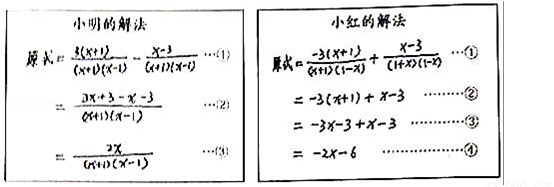 小明的解法
原式 = 3(x+1)/(x+1)(x-1) - x-3/(x+1)(x-1) …①
= 3x+3-x-3/(x+1)(x-1) …②
= 2x/(x+1)(x-1) …③
小红的解法
原式 = -3(x+1)/(x+1)(1-x) + x-3/(1+x)(1-x) …①
= -3(x+1) + x-3 ………②
= -3x-3+x-3 …………③
= -2x-6 …………④